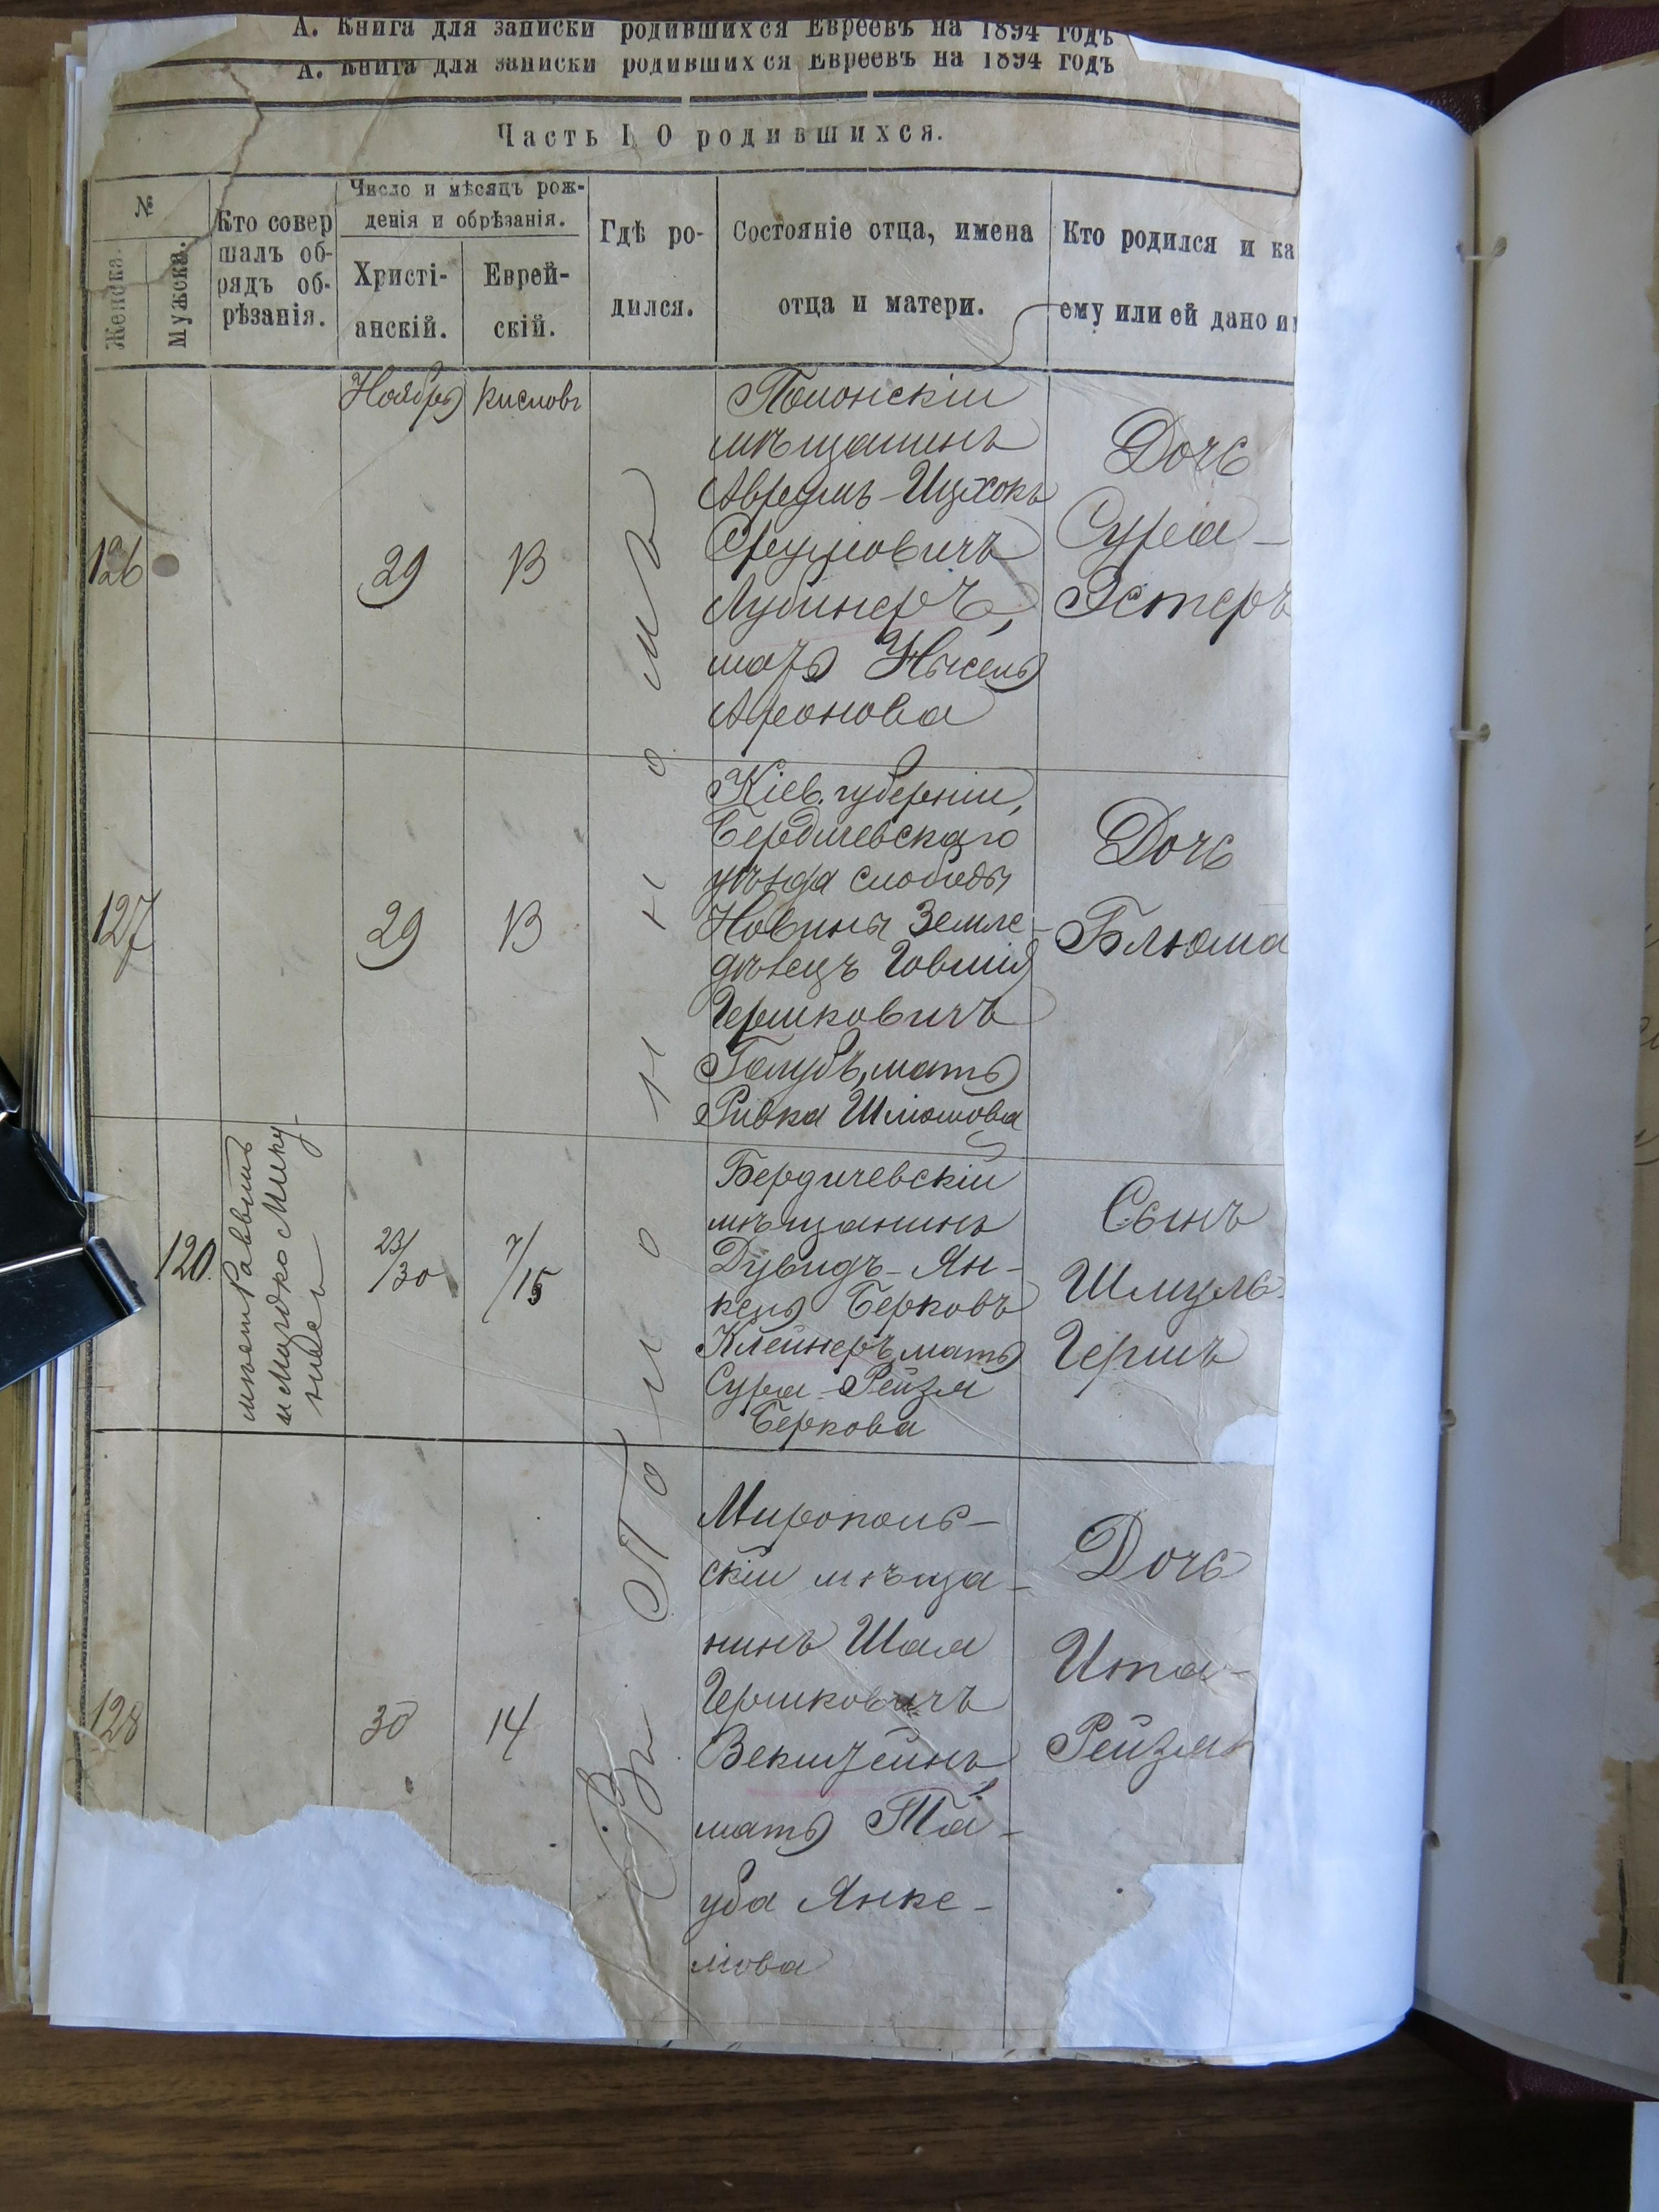 А. Книга для записки родившихся Евреевъ на 1894 годъ
А. Книга для записки родившихся Евреевъ на 1894 годъ
Часть I О родившихся.
№
Женска.
Мужска.
Кто совер
шалъ об-
рядъ об-
рѣзанія.
Число и мѣсяцъ рож-
денія и обрѣзанія.
Христі-
анскій.
Еврей-
скій.
Гдѣ ро-
дился.
Состояніе отца, имена
отца и матери.
Кто родился и ка
ему или ей дано и
Ноябрь
Кислевъ
Въ Полонномъ
126
29
13
Полонскій
мѣщанинъ
Аврумъ-Ицхокъ
Сруловичъ
мать
Аронова
Дочь
Сура-
Эстеръ
127
29
13
Кіев. губерніи,
Бердичевскаго
уѣзда слободы
Новины Земле-
дѣлецъ Іовшія
Гершковичъ
Голубъ, мать
Ривка Шліомова
Дочь
Блюма
120.
23/30
7/15
Бердичевскій
мѣщанинъ
Дувидъ-Ян-
кель Берковъ
Клейнеръ, мать
Сура-Рейзя
Беркова
Сынъ
Шмуль-
Гершъ
128
30
14
Мирополь-
скій мѣща-
нинъ Шая
Гершковичъ
Векштейнъ,
мать Та-
уба Янке-
лова
Дочь
Ита-
Рейзя